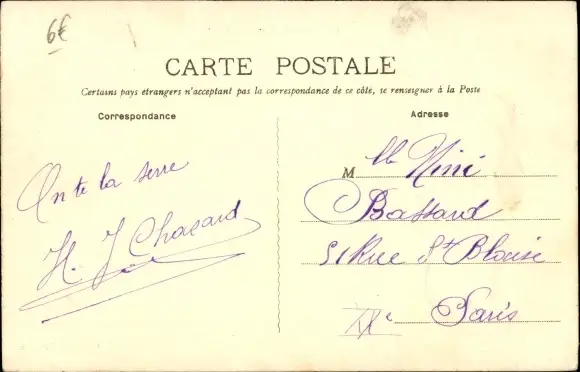 6€
CARTE POSTALE
Certains pays étrangers n'acceptant pas la correspondance de ce côté, se renseigner à la Poste
Correspondance
Adresse
On te la serre
H. J. Chacard
M lle Nini
Bassard
51 Rue St Blaise
Paris